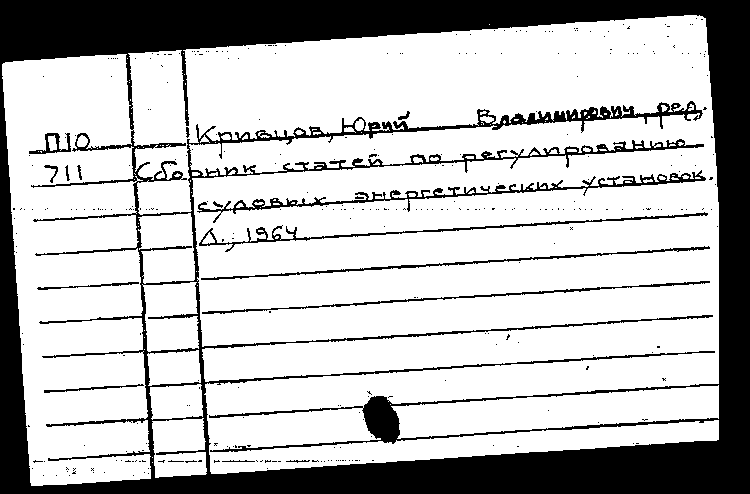 П10 Кривцов, Юрий Владимирович, ред.
711 Сборник статей по регулированию
судовых энергетических установок.
Л., 1964